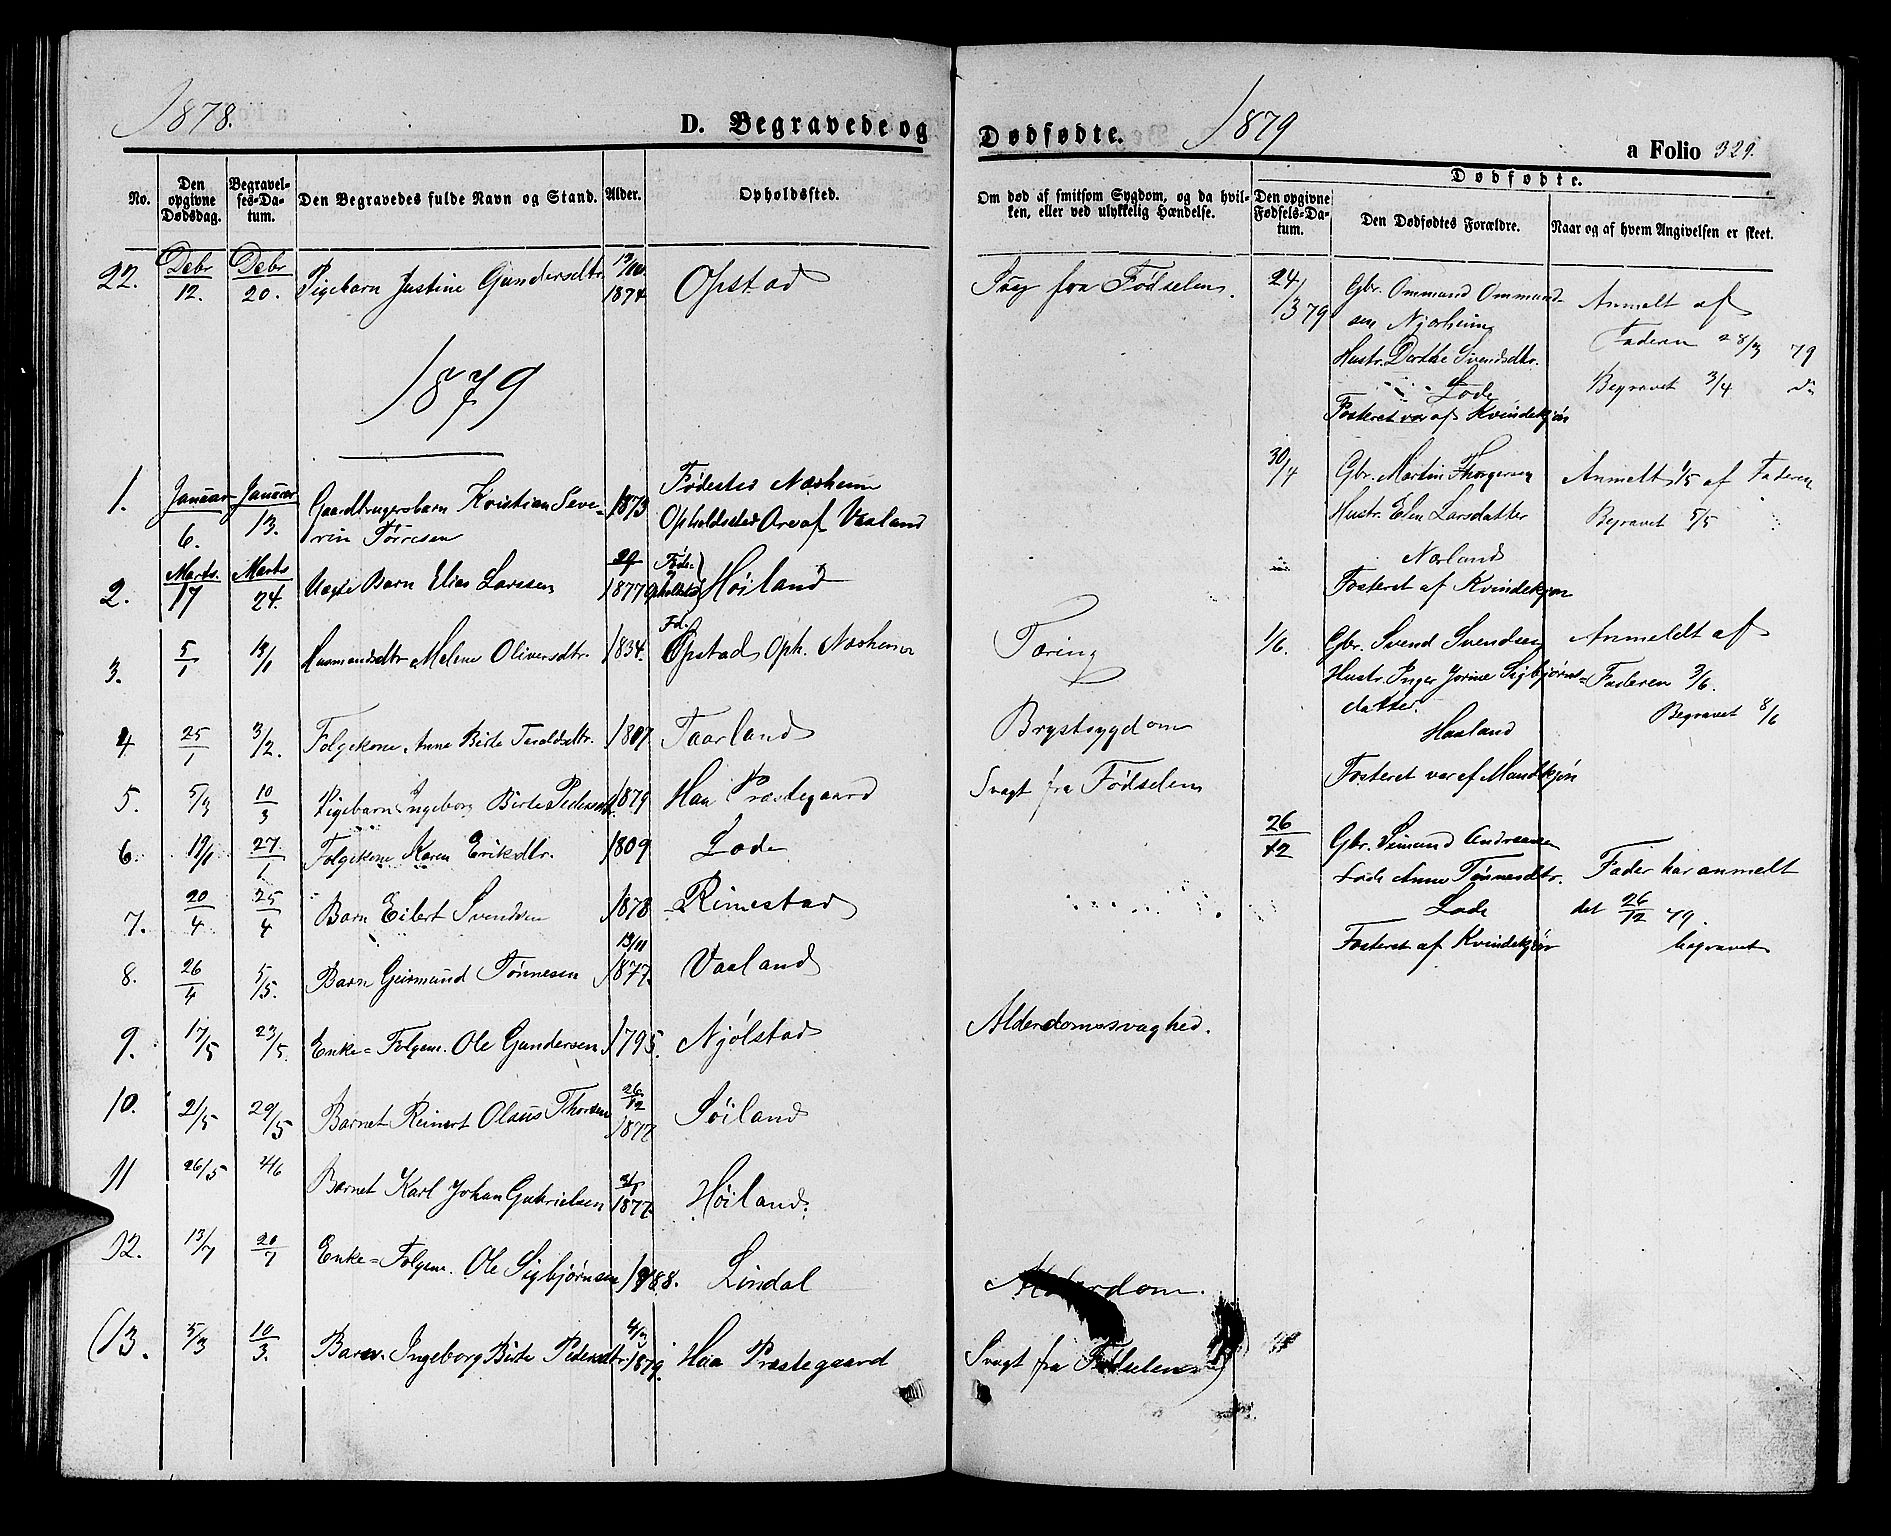 1878.
D. Begravede og
No.
Den opgivne Dødsdag.
Begravelses-Datum.
Den Begravedes fulde Navn og Stand.
Alder.
Opholdssted.
22. Debr 12. Debr 20. Pigebarn Justine Gundersdtr. 1874 Opstad
1879
1. Januar 6. Januar 13. Gaardbrugersbarn Kristian Seve- 1873 Fødested Nærheim
rin Tørresen Opholdssted Ar af Vaaland
2. Marts. 17 Marts 24. Uægte Barn Elias Larsen 1877 Føde- Opholdssted Høiland
3. 5/1 13/1 Husmandsdtr Melene Oliversdtr. 1834. Fd. Opstad Oph. Nærheim
4 25/1 3/2. Folgekone Anne Birte Taraldsdtr. 1807 Taarland
5. 5/3 10/3 Pigebarn Ingeborg Birte Pedersdtr. 1879 Haa Præstegaard
6. 19/1 27/1 Folgekone Karen Eriksdtr. 1809 Lode
7. 20/4 25/4 Barn Eilert Svendsen 1878 Rimestad
8. 26/4 5/5. Barn Geirmund Tønnesen 13/11 1877. Vaaland
9. 17/5 23/5. Enke= Folgem. Ole Gundersen 1795. Njølstad
10. 21/5 29/5 Barnet Reinert Olaus Thorsen 26/12 1877 Søiland
11 26/5 4/6 Barnet Karl Johan Gabrielsen 1877. Høiland.
12. 13/7 20/7 Enke= Folgem. Ole Sigbjørnsen 1788. Lindal
(13. 5/3 10/3. Barn. Ingeborg Birte Pedersdtr. 4/3 1879. Haa Præstegaard
Dødfødte.
1879
a Folio 329.
Om død af smitsom Sygdom, og da hvil-
ken, eller ved ulykkelig Hændelse.
Dødfødte.
Den opgivne Fødsels-Datum.
Den Dødfødtes Forældre.
Naar og af hvem Angivelsen er skeet.
Svag fra Fødselen.
Tæring
Brystsygdom
Svagt fra Fødselen
Alderdomssvaghed.
Alderdom.
Svagt fra Fødselen)
24/3 79 Gbr. Ommund Ommund-
sen Njærheim
Hustr. Dorthe Svendsdtr.
Lode
Fosteret var af Kvindekjøn
Anmelt af
Faderen 28/3 79
Begravet 3/4 do
30/4 Gbr. Martin Thorgersen
Hustr. Elen Larsdatter
Nærland
Fosteret af Kvindekjøn
Anmelt 1/5 af Faderen
Begravet 5/5
1/6. Gbr. Svend Svendsen
Hustr. Inger Jorine Sigbjørns=
datter.
Haaland
Fosteret var af Mandkjøn
Anmeldt af
Faderen 3/6.
Begravet 8/6
26/12 Gbr. Simund Andreasen
Lode Anne Tønnesdtr.
Lode
Fosteret af Kvindekjøn
Fader har anmelt
det 26/12 79.
begravet